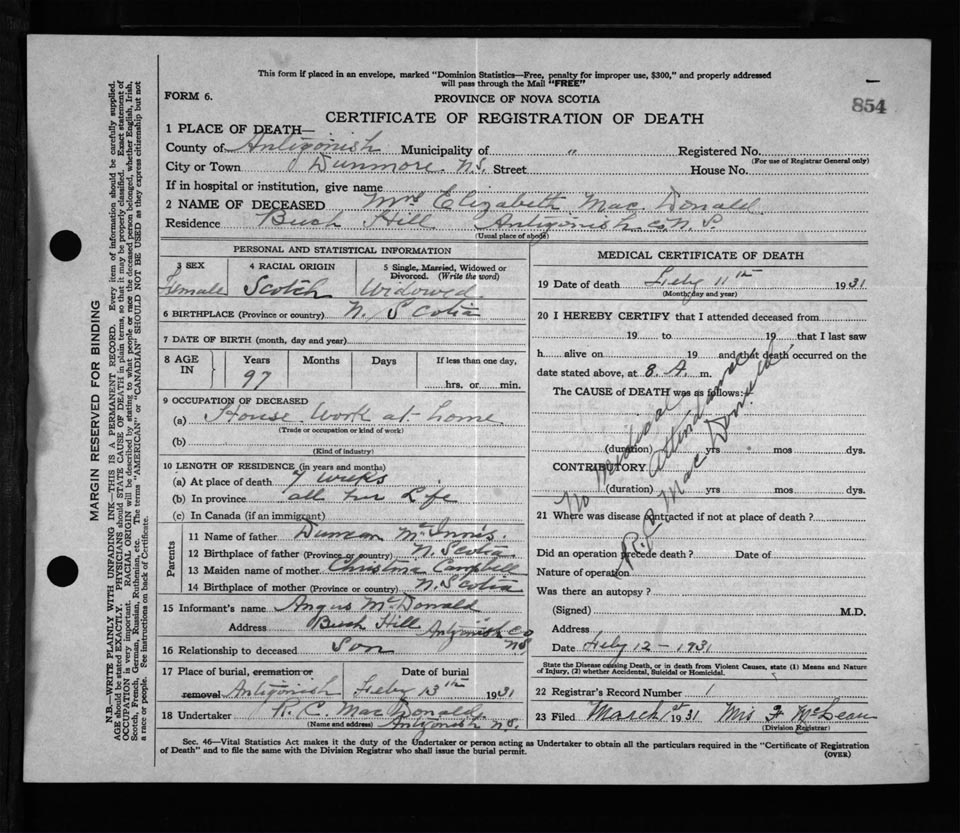 This form if placed in an envelope, marked "Dominion Statistics—Free, penalty for improper use, $300," and properly addressed
will pass through the Mail "FREE"
FORM 6.
PROVINCE OF NOVA SCOTIA
854
CERTIFICATE OF REGISTRATION OF DEATH
1 PLACE OF DEATH—
County of Antigonish Municipality of " Registered No.
(For use of Registrar General only)
City or Town Dunmore N.S. Street House No.
If in hospital or institution, give name
2 NAME OF DECEASED Mrs Elizabeth Mac Donald
Residence Beech Hill Antigonish Co N. S.
(Usual place of abode)
PERSONAL AND STATISTICAL INFORMATION
3 SEX 4 RACIAL ORIGIN 5 Single, Married, Widowed or
Divorced. (Write the word)
Female Scotch Widowed
6 BIRTHPLACE (Province or country) N. Scotia
7 DATE OF BIRTH (month, day and year)
8 AGE IN Years Months Days If less than one day,
97 hrs. or min.
9 OCCUPATION OF DECEASED
(a) House Work at home
(Trade or occupation or kind of work)
(b)
(Kind of industry)
10 LENGTH OF RESIDENCE (in years and months)
(a) At place of death 7 weeks
(b) In province all her Life
(c) In Canada (if an immigrant)
Parents
11 Name of father Duncan McInnis.
12 Birthplace of father (Province or country) N. Scotia
13 Maiden name of mother Christina Campbell
14 Birthplace of mother (Province or country) N. Scotia
15 Informant's name Angus McDonald
Address Beech Hill Antigonish Co NS
16 Relationship to deceased Son
17 Place of burial, cremation or Date of burial
removal Antigonish Feby 13th 1931
18 Undertaker R. C. Mac Donald
(Name and address) Antigonish N.S.
MEDICAL CERTIFICATE OF DEATH
19 Date of death Feby 11th 1931
(Month, day and year)
20 I HEREBY CERTIFY that I attended deceased from
19 to 19 that I last saw
h alive on 19 and that death occurred on the
date stated above, at 8. A. m.
The CAUSE of DEATH was as follows:—
No Medical Attendance
R. C. Mac Don
(duration) yrs mos dys.
CONTRIBUTORY
(duration) yrs mos dys.
21 Where was disease contracted if not at place of death?
Did an operation precede death? Date of
Nature of operation
Was there an autopsy?
(Signed) M.D.
Address
Date Feby 12 – 1931
State the Disease causing Death, or in death from Violent Causes, state (1) Means and Nature
of Injury, (2) whether Accidental, Suicidal or Homicidal.
22 Registrar's Record Number 1
23 Filed March 1st 1931 Mrs F McLean
(Division Registrar)
Sec. 46—Vital Statistics Act makes it the duty of the Undertaker or person acting as Undertaker to obtain all the particulars required in the "Certificate of Registration
of Death" and to file the same with the Division Registrar who shall issue the burial permit.
(OVER)
MARGIN RESERVED FOR BINDING
N.B.—WRITE PLAINLY WITH UNFADING INK—THIS IS A PERMANENT RECORD. Every item of information should be carefully supplied.
AGE should be stated EXACTLY. PHYSICIANS should STATE CAUSE OF DEATH in plain terms, so that it may be properly classified. Exact statement of
OCCUPATION is very important. RACIAL ORIGIN will be described by stating to what people or race the deceased person belonged, whether English, Irish,
Scotch, French, German, Russian, Ruthenian, etc. The terms "AMERICAN" or "CANADIAN" SHOULD NOT BE USED as they express citizenship but not
a race or people. See instructions on back of Certificate.